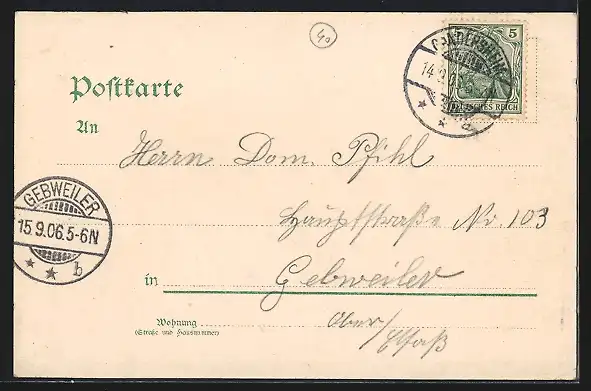 40
5
DEUTSCHES REICH
14.9
Postkarte
An
Herrn Dom. Pfihl
Hauptstraße Nr. 103
GEBWEILER
15.9.06.5-6N
* * b
in Gebweiler
Wohnung
(Straße und Hausnummer)
Ober/Elsaß